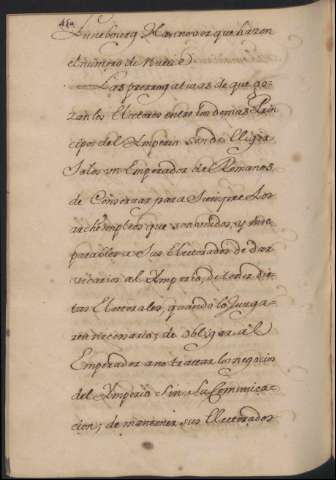 Lunebourg Hannover que hazen
el numero de Nueve
Las prerrogativas de que go-
zan los Electores entre los demas Prin
cipes del Imperio son de Eligir
solos un Emperador de Romanos,
de Conservar para siempre los
archiempleos que son unidos, y inse
parables a sus Electorados de dar
vicarios al Imperio, de tener die-
tas Electorales, quando lo Juzga-
ren necesario; de obligar a el
Emperador a no trattar los negocios
del Imperio sin su Comunica-
cion; de mantener sus Electorados